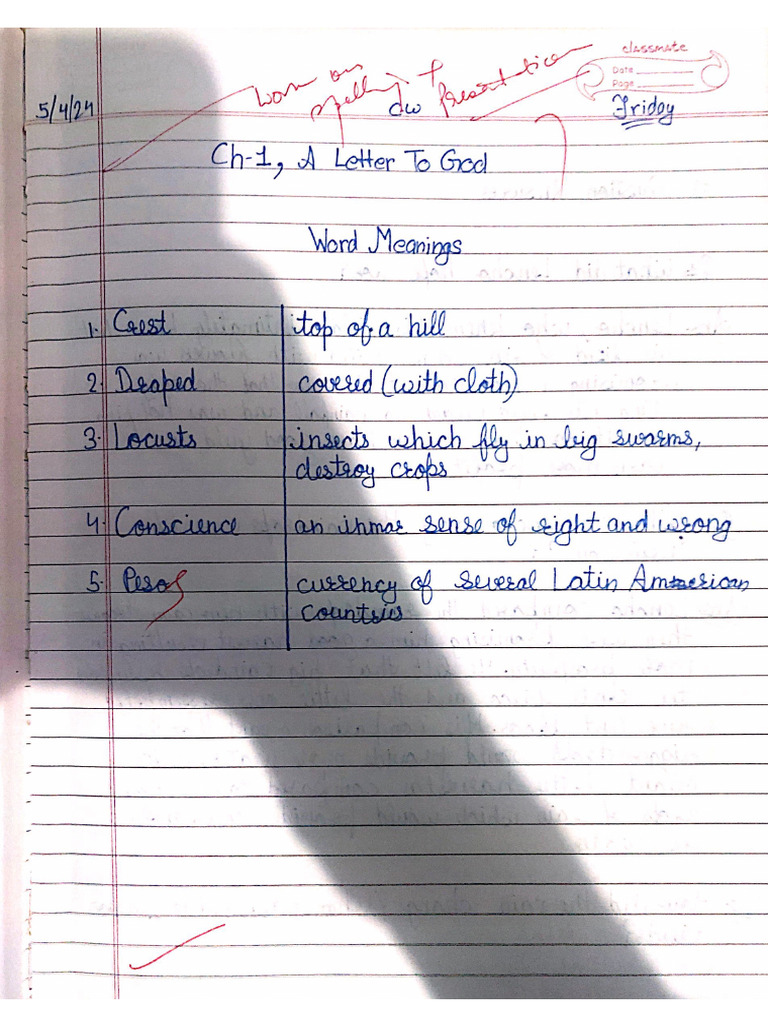 classmate
Date
Page
Work on
spelling +
Presentation
5/4/24 cw Friday
Ch-1, A Letter To God
Word Meanings
1. Crest top of a hill
2. Draped covered (with cloth)
3. Locusts insects which fly in big swarms,
destroy crops
4. Conscience an inmar sense of right and wrong
5. Pesos currency of several Latin American
countries